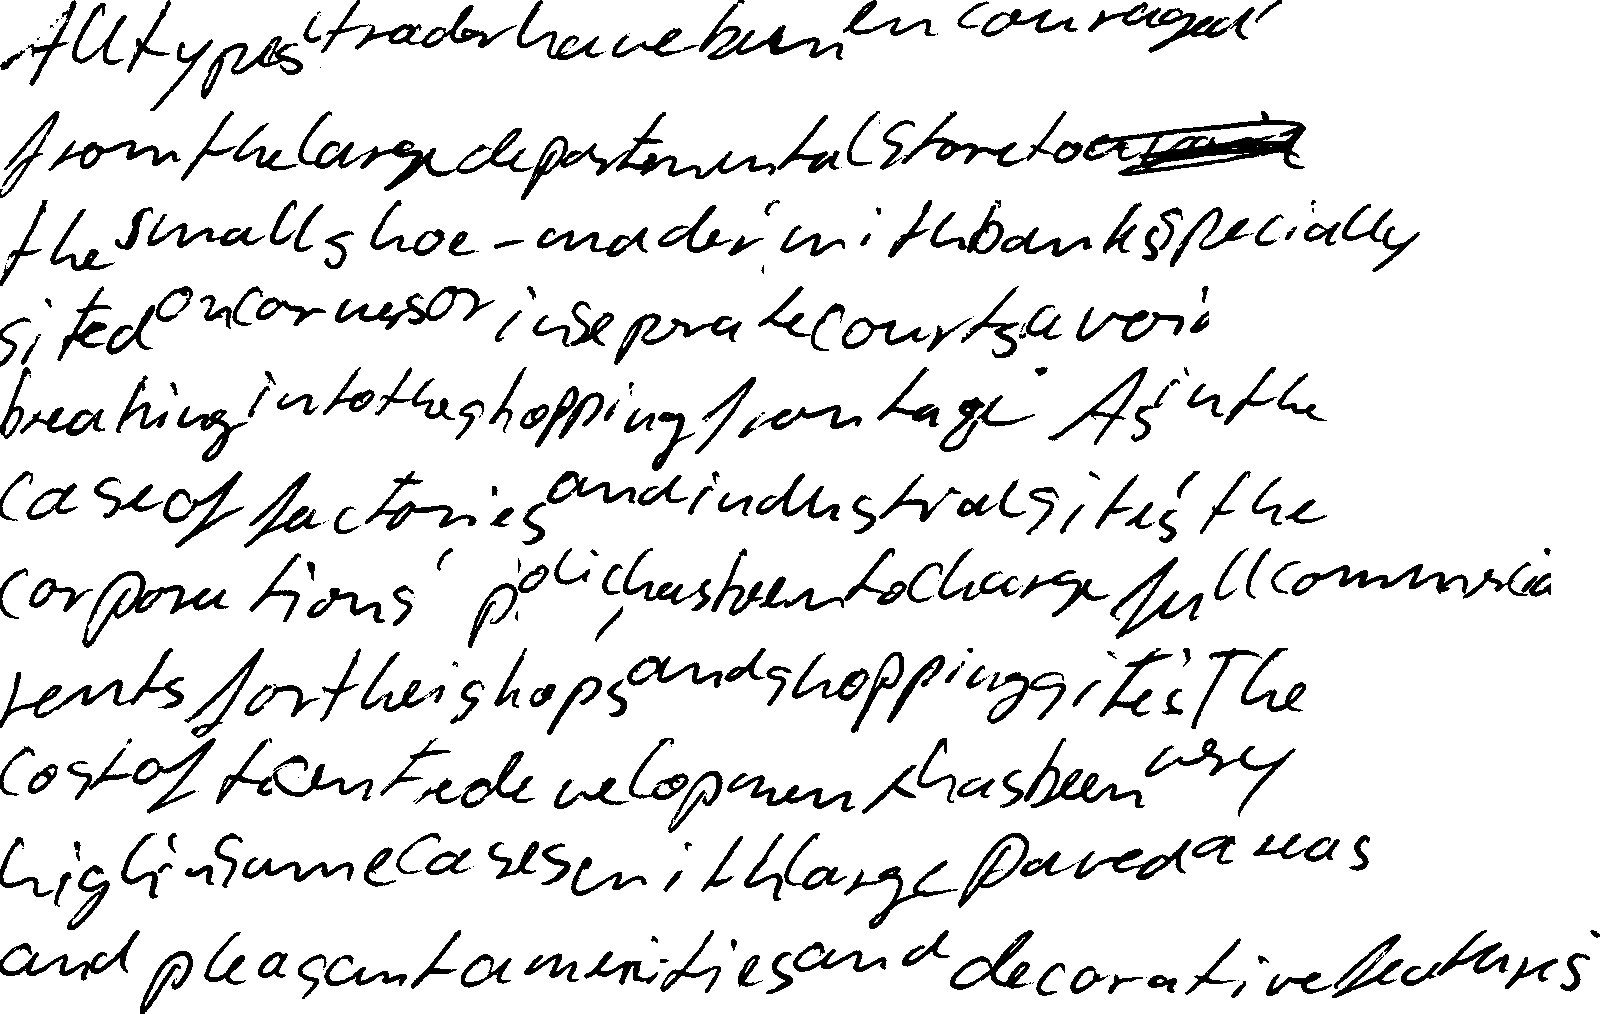 All types trader have been encouraged
from the large departmental store to a
the small shoe-mader with banks specially
sited on corners or in separate courts avoi
breaking into the shopping frontage. As in the
case of factories and industrial sites the
corporations' policy has been to charge full commercia
rents for their shops and shopping sites The
cost of tcentre development has been very
high in some cases with large paved areas
and pleasant amenities and decorative features